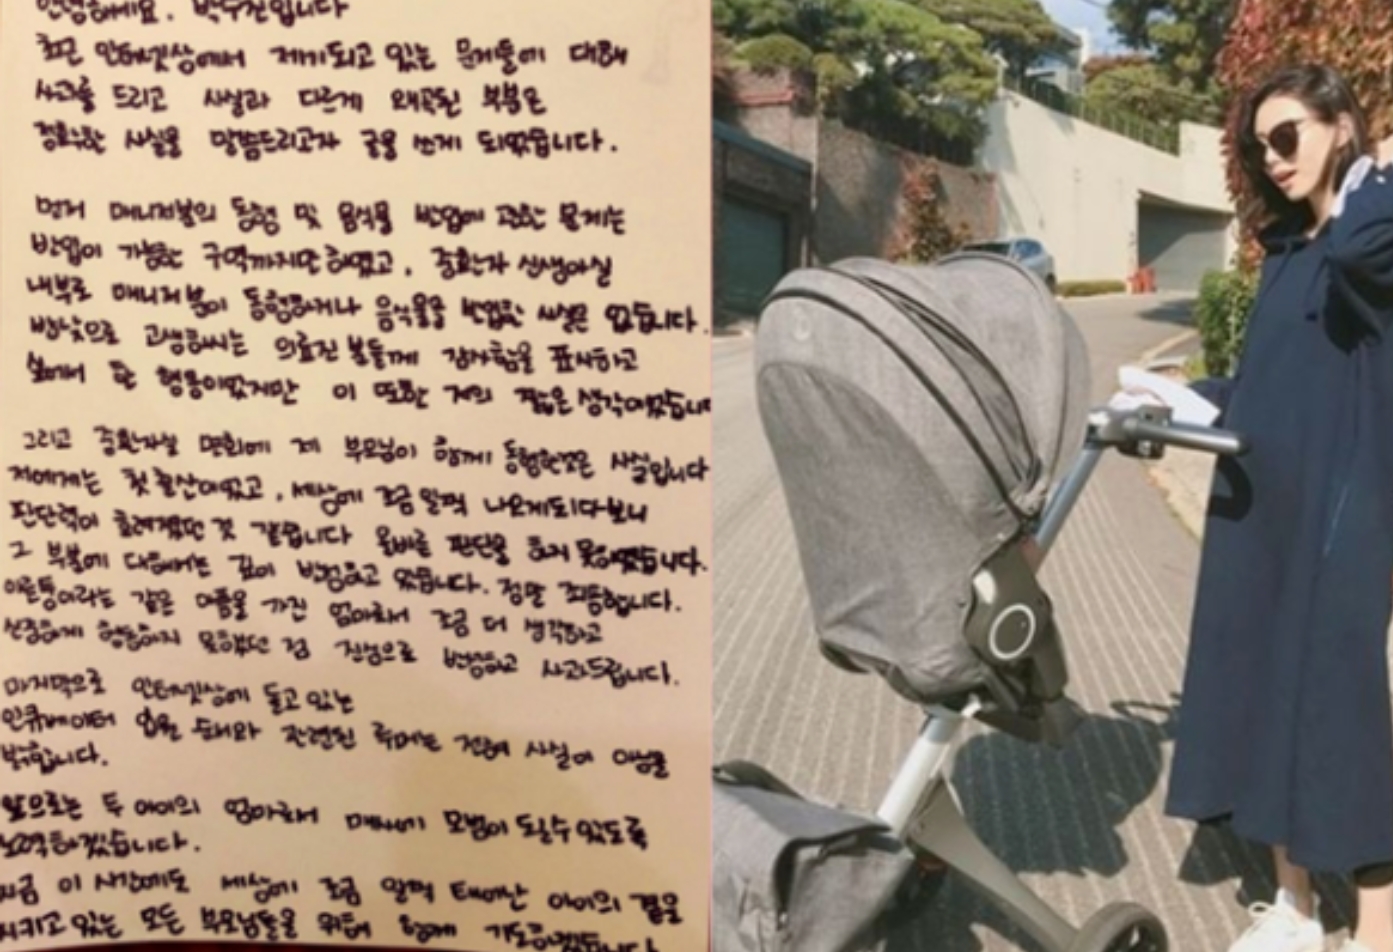 안녕하세요. 박수진입니다
최근 인터넷상에서 제기되고 있는 문제들에 대해
사과를 드리고 사실과 다르게 왜곡된 부분은
정확한 사실을 말씀드리고자 글을 쓰게 되었습니다.
먼저 매니저분의 동행 및 음식물 반입에 관한 문제는
반입이 가능한 구역까지만 하였고, 중환자 선생아실
내부로 매니저분이 동행하거나 음식물을 반입한 사실은 없습니다.
밤낮으로 고생하시는 의료진 분들께 감사함을 표시하고
싶어서 한 행동이었지만 이 또한 저의 짧은 생각이었습니다
그리고 중환자실 면회에 제 부모님이 함께 동행한것은 사실입니다
저에게는 첫 출산이었고, 세상에 조금 일찍 나오게되다보니
판단력이 흐려졌던 것 같습니다 올바른 판단을 하지 못하였습니다.
그 부분에 대해서는 깊이 반성하고 있습니다. 정말 죄송합니다.
이른둥이라는 같은 아픔을 가진 엄마로서 조금 더 생각하고
신중하게 행동하지 못했던 점 진심으로 반성하고 사과드립니다.
마지막으로 인터넷상에 돌고 있는
인큐베이터 입원 순서와 관련된 루머는 전혀 사실이 아님을
밝힙니다.
앞으로는 두 아이의 엄마로서 매사에 모범이 되실수 있도록
노력하겠습니다.
지금 이 시간에도 세상에 조금 일찍 태어난 아이의 곁을
지키고 있는 모든 부모님들을 위해 함께 기도하겠습니다